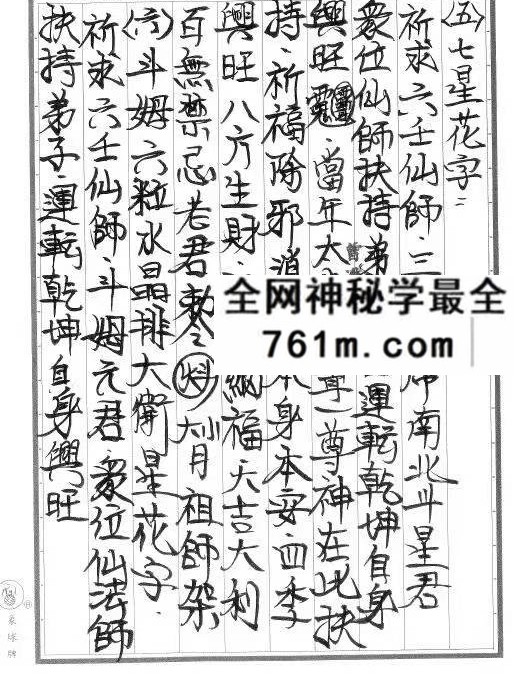 (五)七星花字:
祈求六壬仙師、三 帝南北斗星君
眾位仙師扶持弟 運転乾坤自身
興旺 當年太 尊一尊神在此扶
持、祈福除邪消 本身本安四季
興旺 八方生財、 納福大吉大利
百無禁忌老君勅令 祖師架
(六)斗姆六粒水晶排大衛星花字、
祈求六壬仙師、斗姆元君、眾位仙法師
扶持弟子、運転乾坤自身興旺
全网神秘学最全
761m.com
象球牌